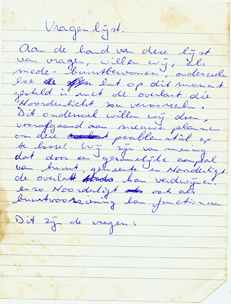 Vragenlijst.
Aan de hand van deze lijst
van vragen, willen wij, als
mede-buurtbewoners, onderzoeken
hoe het op dit moment
gesteld is met de overlast die
Noorderlicht zou veroorzaken.
Dit onderzoek willen wij doen,
voorafgaand aan nieuwe plannen
om deze problematiek op
te lossen. Wij zijn van mening
dat door een gezamenlijke aanpak
van buurt, gemeente en Noorderligt
de overlast kan verdwijnen,
en zo Noorderligt ook als
buurtvoorziening kan functioneren
Dit zijn de vragen: